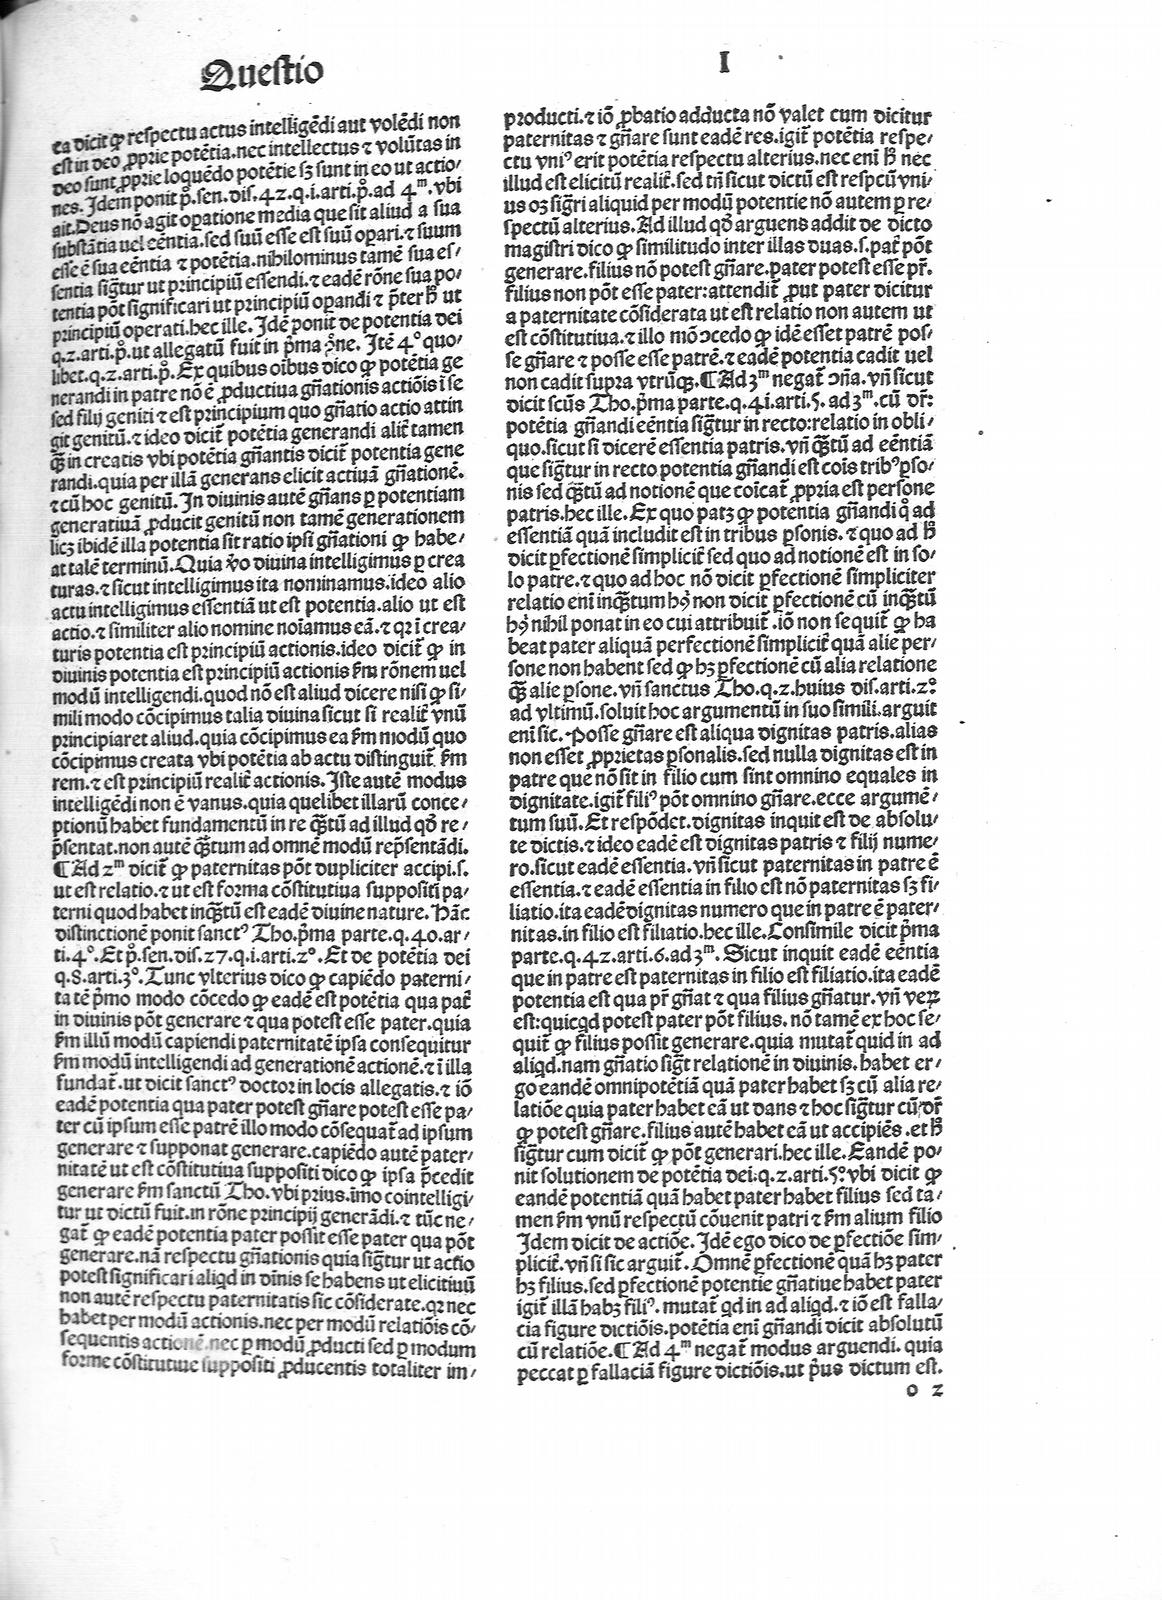 Questio
I
ea dicit ꝙ respectu actus intelligēdi aut volēdi non
est in deo ꝓprie potētia.nec intellectus ⁊ volūtas in
deo sunt ꝓprie loquēdo potētie sꝫ sunt in eo ut actio⸗
nes. Idem ponit p̊. sen. dis. 42. q. i. arti. p̊. ad 4ᵐ. vbi
ait. Deus nō agit oꝑatione media que sit aliud a sua
substātia uel eēntia. sed suū esse est suū oꝑari. ⁊ suum
esse ē sua eēntia ⁊ potētia. nihilominus tamē sua es⸗
sentia sigr̄tur ut principiū essendi. ⁊ eadē rōne sua po⸗
tentia pōt significari ut principiū oꝑandi ⁊ p̄ter h̄ ut
principiū operati. hec ille. Idē ponit de potentia dei
q. 2. arti. p̊. ut allegatū fuit in p̄ma ꝯ̄ne. Itē 4° quo⸗
libet. q. 2. arti. p̊. Ex quibus oībus dico ꝙ potētia ge
nerandi in patre nō ē ꝓductiua gn̄ationis actiōis ī se
sed filij geniti ⁊ est principium quo gn̄atio actio attin
git genitū. ⁊ ideo dicit̄ potētia generandi alit̄ tamen
ꝗ̄ in creatis vbi potētia gn̄antis dicit̄ potentia gene
randi. quia per illā generans elicit actiuā gn̄ationē.
⁊ cū hoc genitū. In diuinis autē gn̄ans ꝑ potentiam
generatiuā ꝓducit genitū non tamē generationem
licꝫ ibidē illa potentia sit ratio ipsi gn̄ationi ꝙ habe⸗
at talē terminū. Quia v̄o diuina intelligimus ꝑ crea
turas. ⁊ sicut intelligimus ita nominamus. ideo alio
actu intelligimus essentiā ut est potentia. alio ut est
actio. ⁊ similiter alio nomine noīamus eā. ⁊ qꝛ ī crea⸗
turis potentia est principiū actionis. ideo dicit̄ ꝙ in
diuinis potentia est principiū actionis ẜm rōnem uel
modū intelligendi. quod nō est aliud dicere nisi ꝙ si⸗
mili modo cōcipimus talia diuina sicut si realit̄ vnū
principiaret aliud. quia cōcipimus ea ẜm modū quo
cōcipimus creata vbi potētia ab actu distinguit̄ ẜm
rem. ⁊ est principiū realit̄ actionis. Iste autē modus
intelligēdi non ē vanus. quia quelibet illarū conce⸗
ptionū habet fundamentū in re ꝗ̄tū ad illud qđ re⸗
p̄sentat. non autē ꝗ̄tum ad omnē modū rep̄sentādi.
¶ Ad 2ᵐ dicit̄ ꝙ paternitas pōt dupliciter accipi. s.
ut est relatio. ⁊ ut est forma cōstitutiua suppositi pa⸗
terni quod habet inꝗ̄tū est eadē diuine nature. Hāc
distinctionē ponit sanctꝰ Tho. p̄ma parte. q. 40. ar⸗
ti. 4°. Et p̊. sen. dis. 27. q. i. arti. 2°. Et de potētia dei
q. 8. arti. 3°. Tunc vlterius dico ꝙ capiēdo paterni⸗
ta tē p̄mo modo cōcedo ꝙ eadē est potētia qua pat̄
in diuinis pōt generare ⁊ qua potest esse pater. quia
ẜm illū modū capiendi paternitatē ipsa consequitur
ẜm modū intelligendi ad generationē actionē. ⁊ ī illa
fundat̄. ut dicit sanctꝰ doctor in locis allegatis. ⁊ iō
eadē potentia qua pater potest gn̄are potest esse pa⸗
ter cū ipsum esse patrē illo modo cōsequat̄ ad ipsum
generare ⁊ supponat generare. capiēdo autē pater⸗
nitatē ut est cōstitutiua suppositi dico ꝙ ipsa p̄cedit
generare ẜm sanctū Tho. vbi prius. imo cointelligi⸗
tur ut dictū fuit. in rōne principij generādi. ⁊ tūc ne⸗
gat̄ ꝙ eadē potentia pater possit esse pater qua pōt
generare. nā respectu gn̄ationis quia sigr̄tur ut actio
potest significari aliqd in diīnis se habens ut elicitiuū
non autē respectu paternitatis sic cōsiderate. qꝛ nec
habet per modū actionis. nec per modū relatiōis cō⸗
sequentis actionē. nec ꝑ modū ꝓducti sed ꝑ modum
forme cōstitutiue suppositi ꝓducentis totaliter im⸗
producti. ⁊ iō ꝓbatio adducta nō valet cum dicitur
paternitas ⁊ gn̄are sunt eadē res. igit̄ potētia respe⸗
ctu vniꝰ erit potētia respectu alterius. nec enī h̄ nec
illud est elicitū realit̄. sed tn̄ sicut dictū est respectū vni⸗
us oꝫ sigr̄i aliquid per modū potentie nō autem ꝑ re⸗
spectū alterius. Ad illud qđ arguens addit de dicto
magistri dico ꝙ similitudo inter illas duas. s. pat̄ pōt
generare. filius nō potest gn̄are. pater potest esse pr̄.
filius non pōt esse pater: attendit̄ ꝓut pater dicitur
a paternitate cōsiderata ut est relatio non autem ut
est cōstitutiua. ⁊ illo mō ↄcedo ꝙ idē esset patrē pos⸗
se gn̄are ⁊ posse esse patrē. ⁊ eadē potentia cadit uel
non cadit supra vtrūqꝫ. ¶ Ad 3ᵐ negat̄ ↄn̄a. vn̄ sicut
dicit scūs Tho. p̄ma parte. q. 41. arti. 5. ad 3ᵐ. cū dr̄:
potētia gn̄andi eēntia sigr̄tur in recto: relatio in obli⸗
quo. sicut si dicerē essentia patris. vn̄ ꝗ̄tū ad eēntiā
que sigr̄tur in recto potentia gn̄andi est cōis tribꝰ ꝑso⸗
nis sed ꝗ̄tū ad notionē que coīcat̄ ꝓpria est persone
patris. hec ille. Ex quo patꝫ ꝙ potentia gn̄andi q̊ ad
essentiā quā includit est in tribus ꝑsonis. ⁊ quo ad h̄
dicit ꝑfectionē simplicit̄ sed quo ad notionē est in so⸗
lo patre. ⁊ quo ad hoc nō dicit ꝑfectionē simpliciter
relatio enī inꝗ̄tum hꝰ non dicit ꝑfectionē cū inꝗ̄tū
hꝰ nihil ponat in eo cui attribuit̄. iō non sequit̄ ꝙ ha
beat pater aliquā perfectionē simplicit̄ quā alie per⸗
sone non habent sed ꝙ hꝫ ꝑfectionē cū alia relatione
ꝗ̄ alie ꝑsone. vn̄ sanctus Tho. q. 2. huius dis. arti. 2°
ad vltimū. soluit hoc argumentū in suo simili. arguit
enī sic. Posse gn̄are est aliqua dignitas patris. alias
non esset ꝓprietas ꝑsonalis. sed nulla dignitas est in
patre que nō sit in filio cum sint omnino equales in
dignitate. igit̄ filiꝰ pōt omnino gn̄are. ecce argumē⸗
tum suū. Et respōdet. dignitas inquit est de absolu⸗
te dictis. ⁊ ideo eadē est dignitas patris ⁊ filij nume⸗
ro. sicut eadē essentia. vn̄ sicut paternitas in patre ē
essentia. ⁊ eadē essentia in filio est nō paternitas sꝫ fi⸗
liatio. ita eadē dignitas numero que in patre ē pater⸗
nitas. in filio est filiatio. hec ille. Consimile dicit p̄ma
parte. q. 42. arti. 6. ad 3ᵐ. Sicut inquit eadē eēntia
que in patre est paternitas in filio est filiatio. ita eadē
potentia est qua pr̄ gn̄at ⁊ qua filius gn̄atur. vn̄ veꝝ
est: quicqd potest pater pōt filius. nō tamē ex hoc se⸗
quit̄ ꝙ filius possit generare. quia mutat̄ quid in ad
aliqd. nam gn̄atio sigt̄ relationē in diuinis. habet er⸗
go eandē omnipotētiā quā pater habet sꝫ cū alia re⸗
latiōe quia pater habet eā ut dans ⁊ hoc sigr̄tur cū dr̄
ꝙ potest gn̄are. filius autē habet eā ut accipiēs. et h̄
sigr̄tur cum dicit̄ ꝙ pōt generari. hec ille. Eandē po⸗
nit solutionem de potētia dei: q. 2. arti. 5° vbi dicit ꝙ
eandē potentiā quā habet pater habet filius sed ta⸗
men ẜm vnū respectū cōuenit patri ⁊ ẜm alium filio
Idem dicit de actiōe. Idē ego dico de ꝑfectiōe sim⸗
plicit̄. vn̄ si sic arguit̄. Omnē ꝑfectionē quā hꝫ pater
hꝫ filius. sed ꝑfectionē potentie gn̄atiue habet pater
igit̄ illā habꝫ filiꝰ. mutat̄ qd in ad aliqd. ⁊ iō est falla⸗
cia figure dictiōis. potētia enī gn̄andi dicit absolutū
cū relatiōe. ¶ Ad 4ᵐ negat̄ modus arguendi. quia
peccat ꝑ fallaciā figure dictiōis. ut p̄us dictum est.
o 2